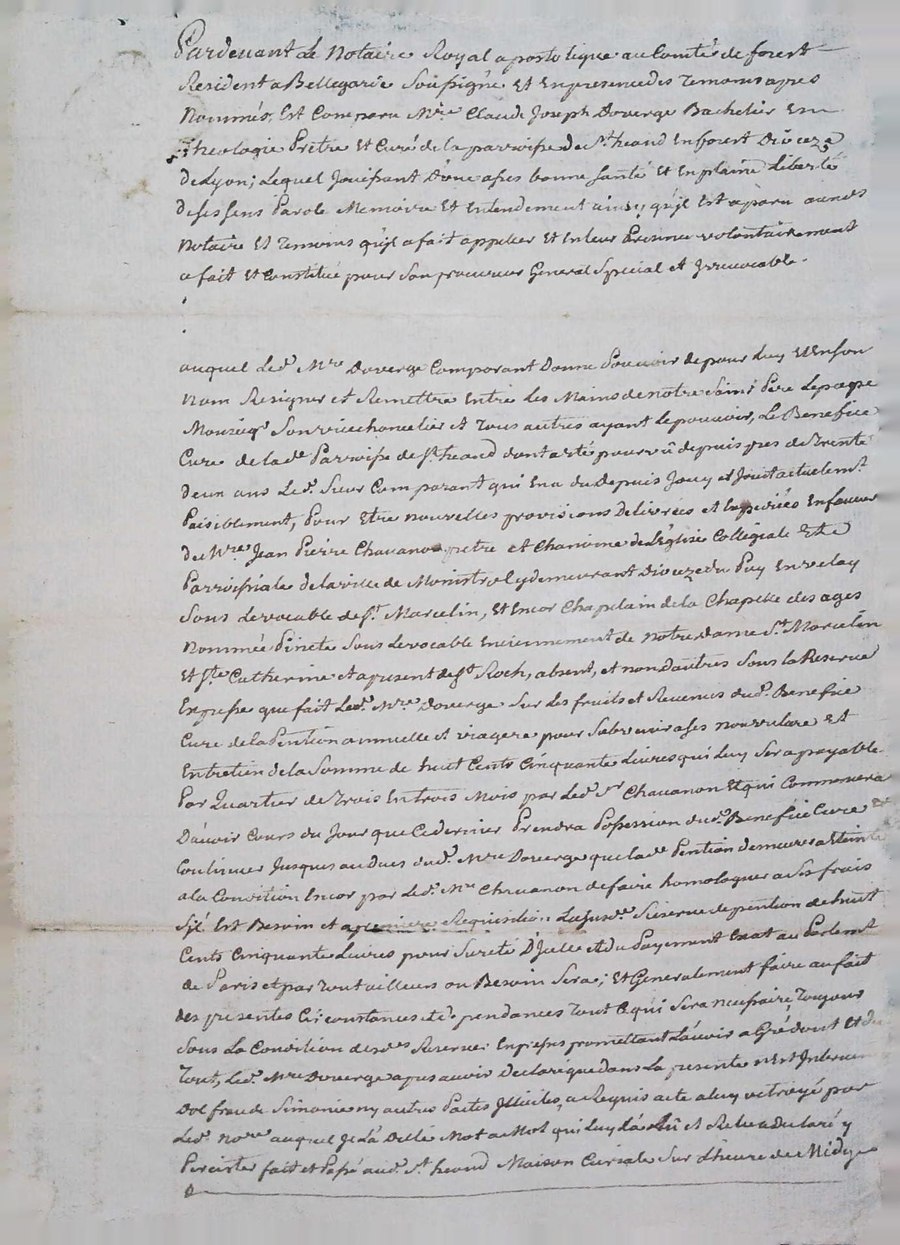 Pardevant Le Notaire Royal apostolique au Comté de forest
Resident a Bellegarde Soussigné Et En presence des Temoins apres
Nommés, Est Comparu Mre Claude Joseph Doverge Bachelier En
Theologie Prêtre Et Curé de la parroisse de St heand En forest Dioceze
de Lyon; Lequel Jouissant D'une asses bonne santé Et En plaine Liberté
de ses sens Parole Memoire Et Entendement ainsy qu'jl Est aparu aux dts
Notaire Et Temoins qu'jl a fait appeller Et En leur Personne volontairement
a fait Et Constitué pour son procureur General Special et Jrrevocable.
auquel Led. Mre Doverge Comparant Donne Pouvoir de pour Luy Et En son
Nom Resigner et Remettre Entre Les Mains de notre Saint Père Le pape
Monseigr Son vice chancelier et Tous autres ayant Le pouvoir, Le Benefice
Cure de lade Parroisse de St heand dont a été pourvû depuis pres de Trente
deux ans Led. Sieur Comparant qui En a du Depuis Jouy et Jouit actuelemt
Paisiblement, Pour Etre nouvelles provisions Delivrées et Expediées En faveur
de Mre Jean Pierre Chavanon pretre et Chanoine de L'Eglise Collegiale Et
Parroissiale de la ville de Monistrol y demeurant Dioceze du Puy En velay
Sous Le vocable de St Marcelin, Et Encor Chapelain de la Chapelle des ages
Nommée Pinete Sous Le vocable Enciennement de Notre dame St Marcelin
Et Ste Catherine et a present de St Roch, absent, et non D'autres Sous la Reserve
Expresse que fait Led. Mre Doverge Sur les fruits et Revenus dud. Benefice
Cure de la Pention annuelle et viagere pour Subvenir a ses nourriture Et
Entretien de la Somme de huit Cents Cinquante Livres qui Luy Sera payable
Par Quartier de Trois En trois Mois par Led. Sr Chavanon Et qui Commencera
D'avoir Cours du Jour que Ce dernier Prendra Possession dud. Benefice Cure Et
Continuer Jusques au deces dud. Mre Doverge que lade Pention demeurera Eteinte
a la Condition Encor par Led. Mre Chavanon de faire homologuer a Ses frais
S'jl Est Besoin et a premiere Requisition La susde Reserve de pention de huit
Cents Cinquante Livres pour Sureté D'jcelle et du Payement Exat au Parlemt
de Paris et par Tout ailleurs ou Besoin Sera; Et Generalement faire au fait
des presentes Circonstances et dependances Tout Ce qui Sera necessaire, Toujours
Sous La Condition desdes Reserves Expresses promettant L'avoir a Gré dont Et du
Tout, Led. Mre Doverge apres avoir Declaré que dans La presente n'Est Intervenu
Dol fraude Simonie ny autres Pactes Jllicites, a Requis acte a luy octroyé par
Led. Nore auquel Jl L'a Dicté Mot a Mot qui Luy L'a Lû et Relu a declaré y
Persister fait et Passé aud. St heand Maison Curiale Sur L'heure de Midy